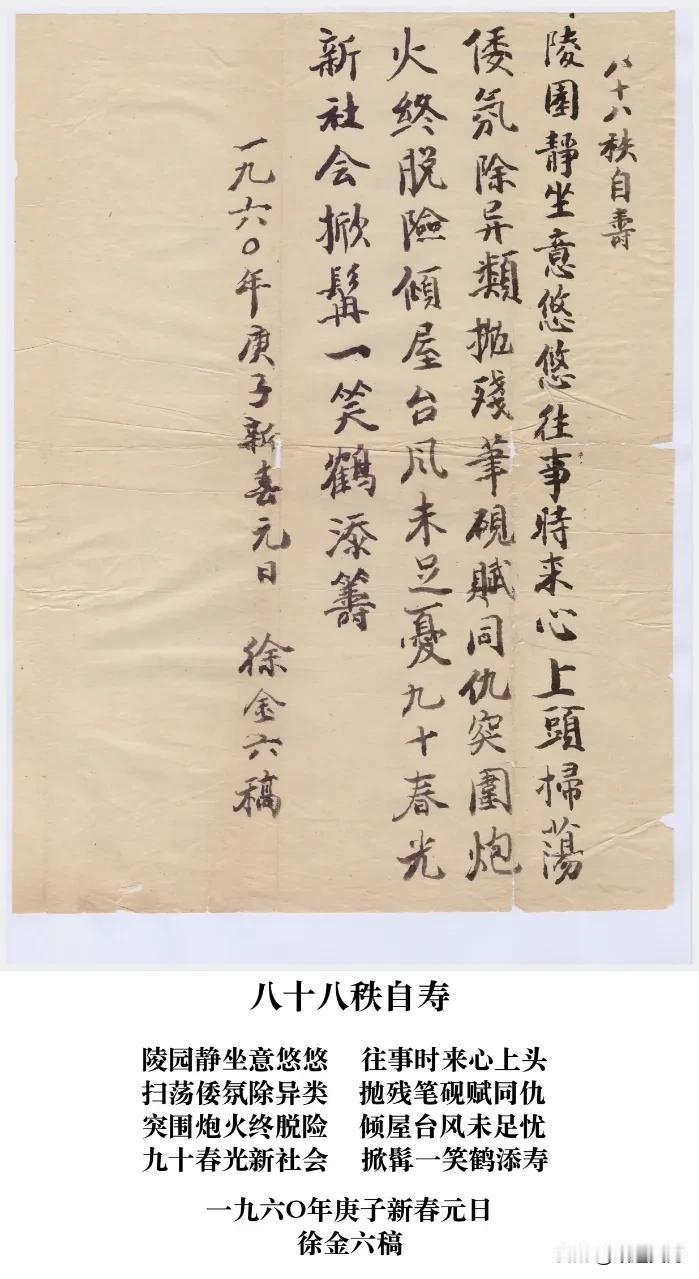 八十八秩自壽
陵園靜坐意悠悠往事時来心上頭掃蕩
倭氛除异類抛殘筆硯賦同仇突圍炮
火終脱險傾屋台风未足憂九十春光
新社会掀髯一笑鶴添籌
一九六〇年庚子新春元日 徐金六稿
八十八秩自寿
陵园静坐意悠悠 往事时来心上头
扫荡倭氛除异类 抛残笔砚赋同仇
突围炮火终脱险 倾屋台风未足忧
九十春光新社会 掀髯一笑鹤添寿
一九六〇年庚子新春元日
徐金六稿